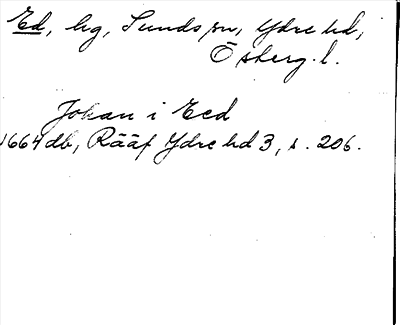 Ed, hg, Sunds sn, Ydre hd,
Östberg. l.
Johan i Eed
1664 db, Rääf Ydre hd 3, s. 206.